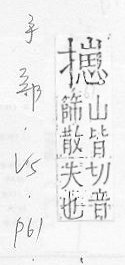 山皆切音
篩散失也
手部.V5.P61